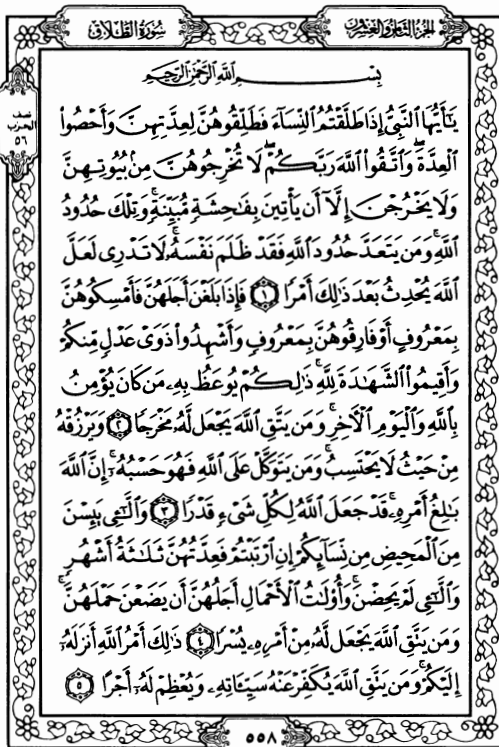 الجزء الثامن والعشرون
سورة الطلاق
نصف
الحزب
٥٦
بِسْمِ اللَّهِ الرَّحْمَٰنِ الرَّحِيمِ
يَٰٓأَيُّهَا النَّبِيُّ إِذَا طَلَّقْتُمُ النِّسَآءَ فَطَلِّقُوهُنَّ لِعِدَّتِهِنَّ وَأَحْصُوا۟
الْعِدَّةَ ۖ وَاتَّقُوا۟ اللَّهَ رَبَّكُمْ ۖ لَا تُخْرِجُوهُنَّ مِنۢ بُيُوتِهِنَّ
وَلَا يَخْرُجْنَ إِلَّآ أَن يَأْتِينَ بِفَٰحِشَةٍ مُّبَيِّنَةٍ ۚ وَتِلْكَ حُدُودُ
اللَّهِ ۚ وَمَن يَتَعَدَّ حُدُودَ اللَّهِ فَقَدْ ظَلَمَ نَفْسَهُۥ ۚ لَا تَدْرِى لَعَلَّ
اللَّهَ يُحْدِثُ بَعْدَ ذَٰلِكَ أَمْرًا ١ فَإِذَا بَلَغْنَ أَجَلَهُنَّ فَأَمْسِكُوهُنَّ
بِمَعْرُوفٍ أَوْ فَارِقُوهُنَّ بِمَعْرُوفٍ وَأَشْهِدُوا۟ ذَوَىْ عَدْلٍ مِّنكُمْ
وَأَقِيمُوا۟ الشَّهَٰدَةَ لِلَّهِ ۚ ذَٰلِكُمْ يُوعَظُ بِهِۦ مَن كَانَ يُؤْمِنُ
بِاللَّهِ وَالْيَوْمِ الْءَاخِرِ ۚ وَمَن يَتَّقِ اللَّهَ يَجْعَل لَّهُۥ مَخْرَجًا ٢ وَيَرْزُقْهُ
مِنْ حَيْثُ لَا يَحْتَسِبُ ۚ وَمَن يَتَوَكَّلْ عَلَى اللَّهِ فَهُوَ حَسْبُهُۥٓ ۚ إِنَّ اللَّهَ
بَٰلِغُ أَمْرِهِۦ ۚ قَدْ جَعَلَ اللَّهُ لِكُلِّ شَىْءٍ قَدْرًا ٣ وَالَّٰٓـِٔى يَئِسْنَ
مِنَ الْمَحِيضِ مِن نِّسَآئِكُمْ إِنِ ارْتَبْتُمْ فَعِدَّتُهُنَّ ثَلَٰثَةُ أَشْهُرٍ
وَالَّٰٓـِٔى لَمْ يَحِضْنَ ۚ وَأُو۟لَٰتُ الْأَحْمَالِ أَجَلُهُنَّ أَن يَضَعْنَ حَمْلَهُنَّ ۚ
وَمَن يَتَّقِ اللَّهَ يَجْعَل لَّهُۥ مِنْ أَمْرِهِۦ يُسْرًا ٤ ذَٰلِكَ أَمْرُ اللَّهِ أَنزَلَهُۥٓ
إِلَيْكُمْ ۚ وَمَن يَتَّقِ اللَّهَ يُكَفِّرْ عَنْهُ سَيِّـَٔاتِهِۦ وَيُعْظِمْ لَهُۥٓ أَجْرًا ٥
٥٥٨